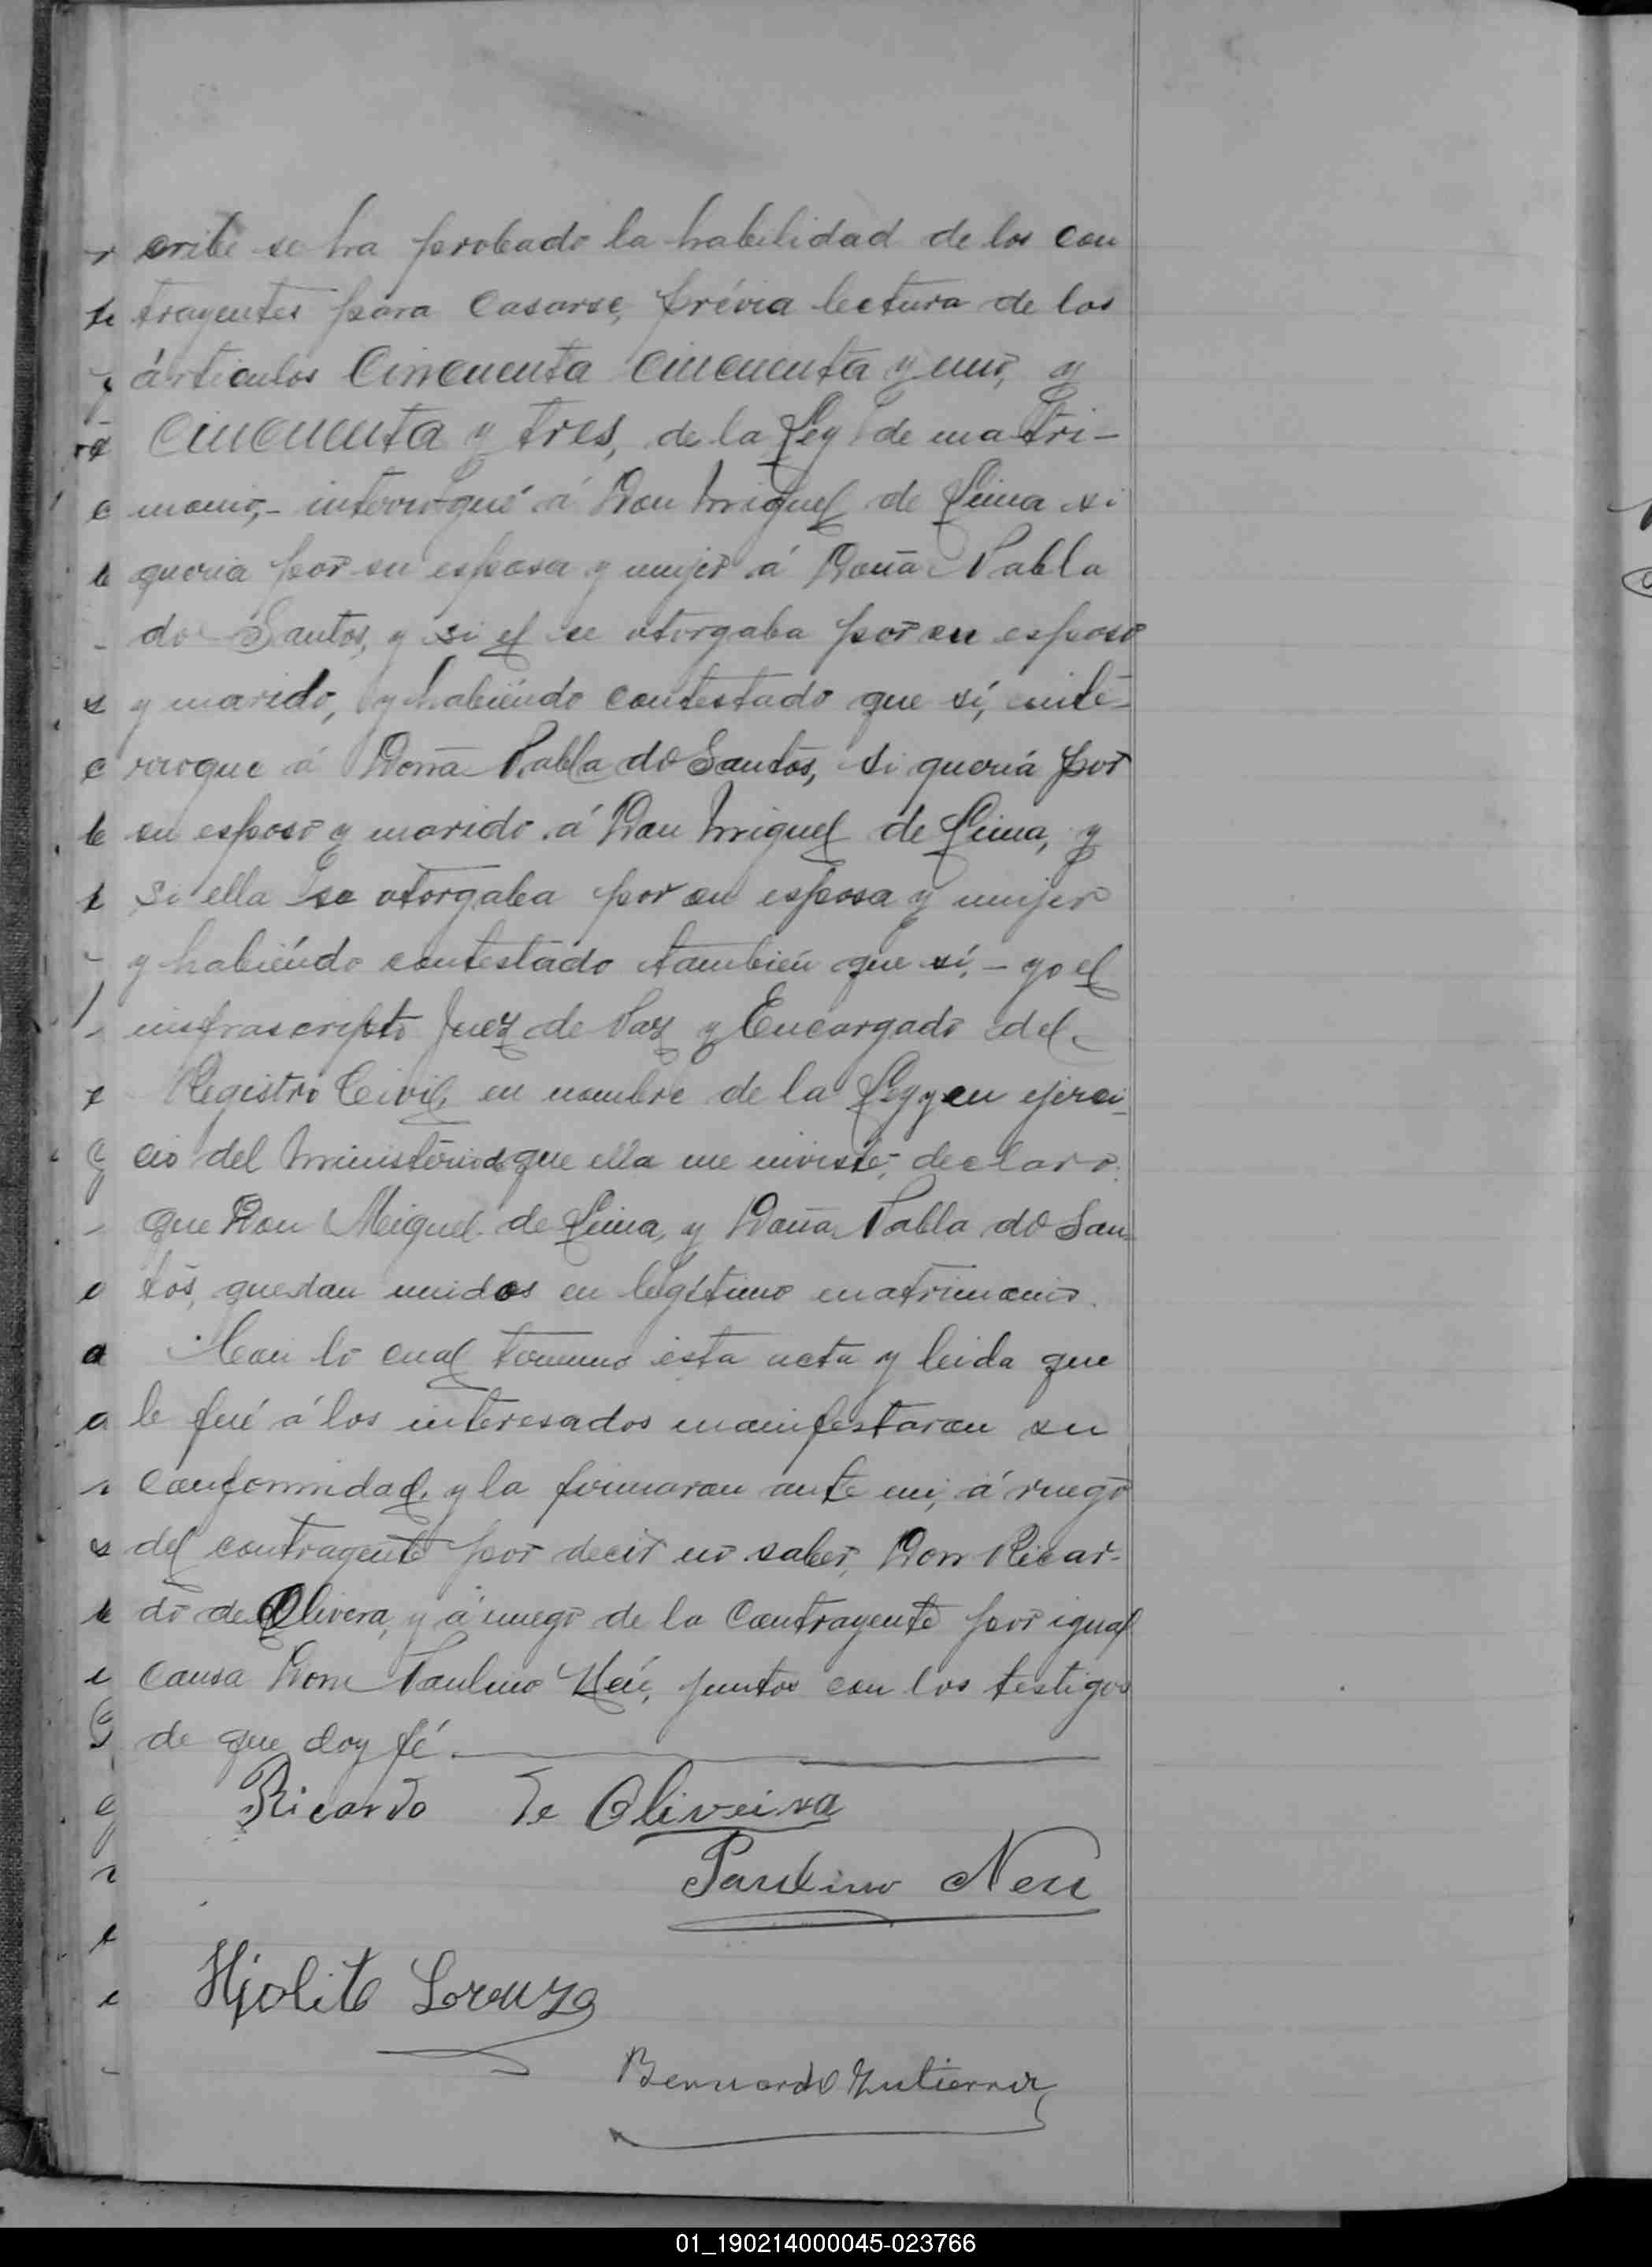 cribe se ha probado la habilidad de los con
trayentes para casarse, prévia lectura de los
árticulos Cincuenta cincuenta y uno, y
cincuenta y tres, de la Ley de matri-
monio,- interrogué á Don Miguel de Lima si
queria por su esposa y mujer á Doña Pabla
do Santos, y si el se otorgaba por su esposo
y marido, y habiéndo contestado que sí, inte-
rroque á Doña Pabla do Santos, si queriá por
su esposo y marido á Don Miguel de Lima, y
si ella se otorgaba por su esposa y mujer
y habiéndo contestado también que sí,- yo el
infrascripto Juez de Paz y Encargado del
Registro Civil, en nombre de la Ley y en ejerci-
cio del Ministerio de que ella me inviste, declaro
que Don Miguel de Lima, y Doña Pabla do San-
tos, quedan unidos en legítimo matrimonio.
Con lo cual termino esta acta y leida que
le fué á los interesados manifestaron su
conformidad, y la firmaron ante mi, á ruego
del contrayente por decir no saber, Don Ricar-
do de Olivera, y á ruego de la contrayente por igual
causa Don Paulino Neú, juntos con los testigos
de que doy fé.
Ricardo de Oliveira
Paulino Neu
Hipolito Lorenzo
Bernardo Gutierrez
01_190214000045-023766